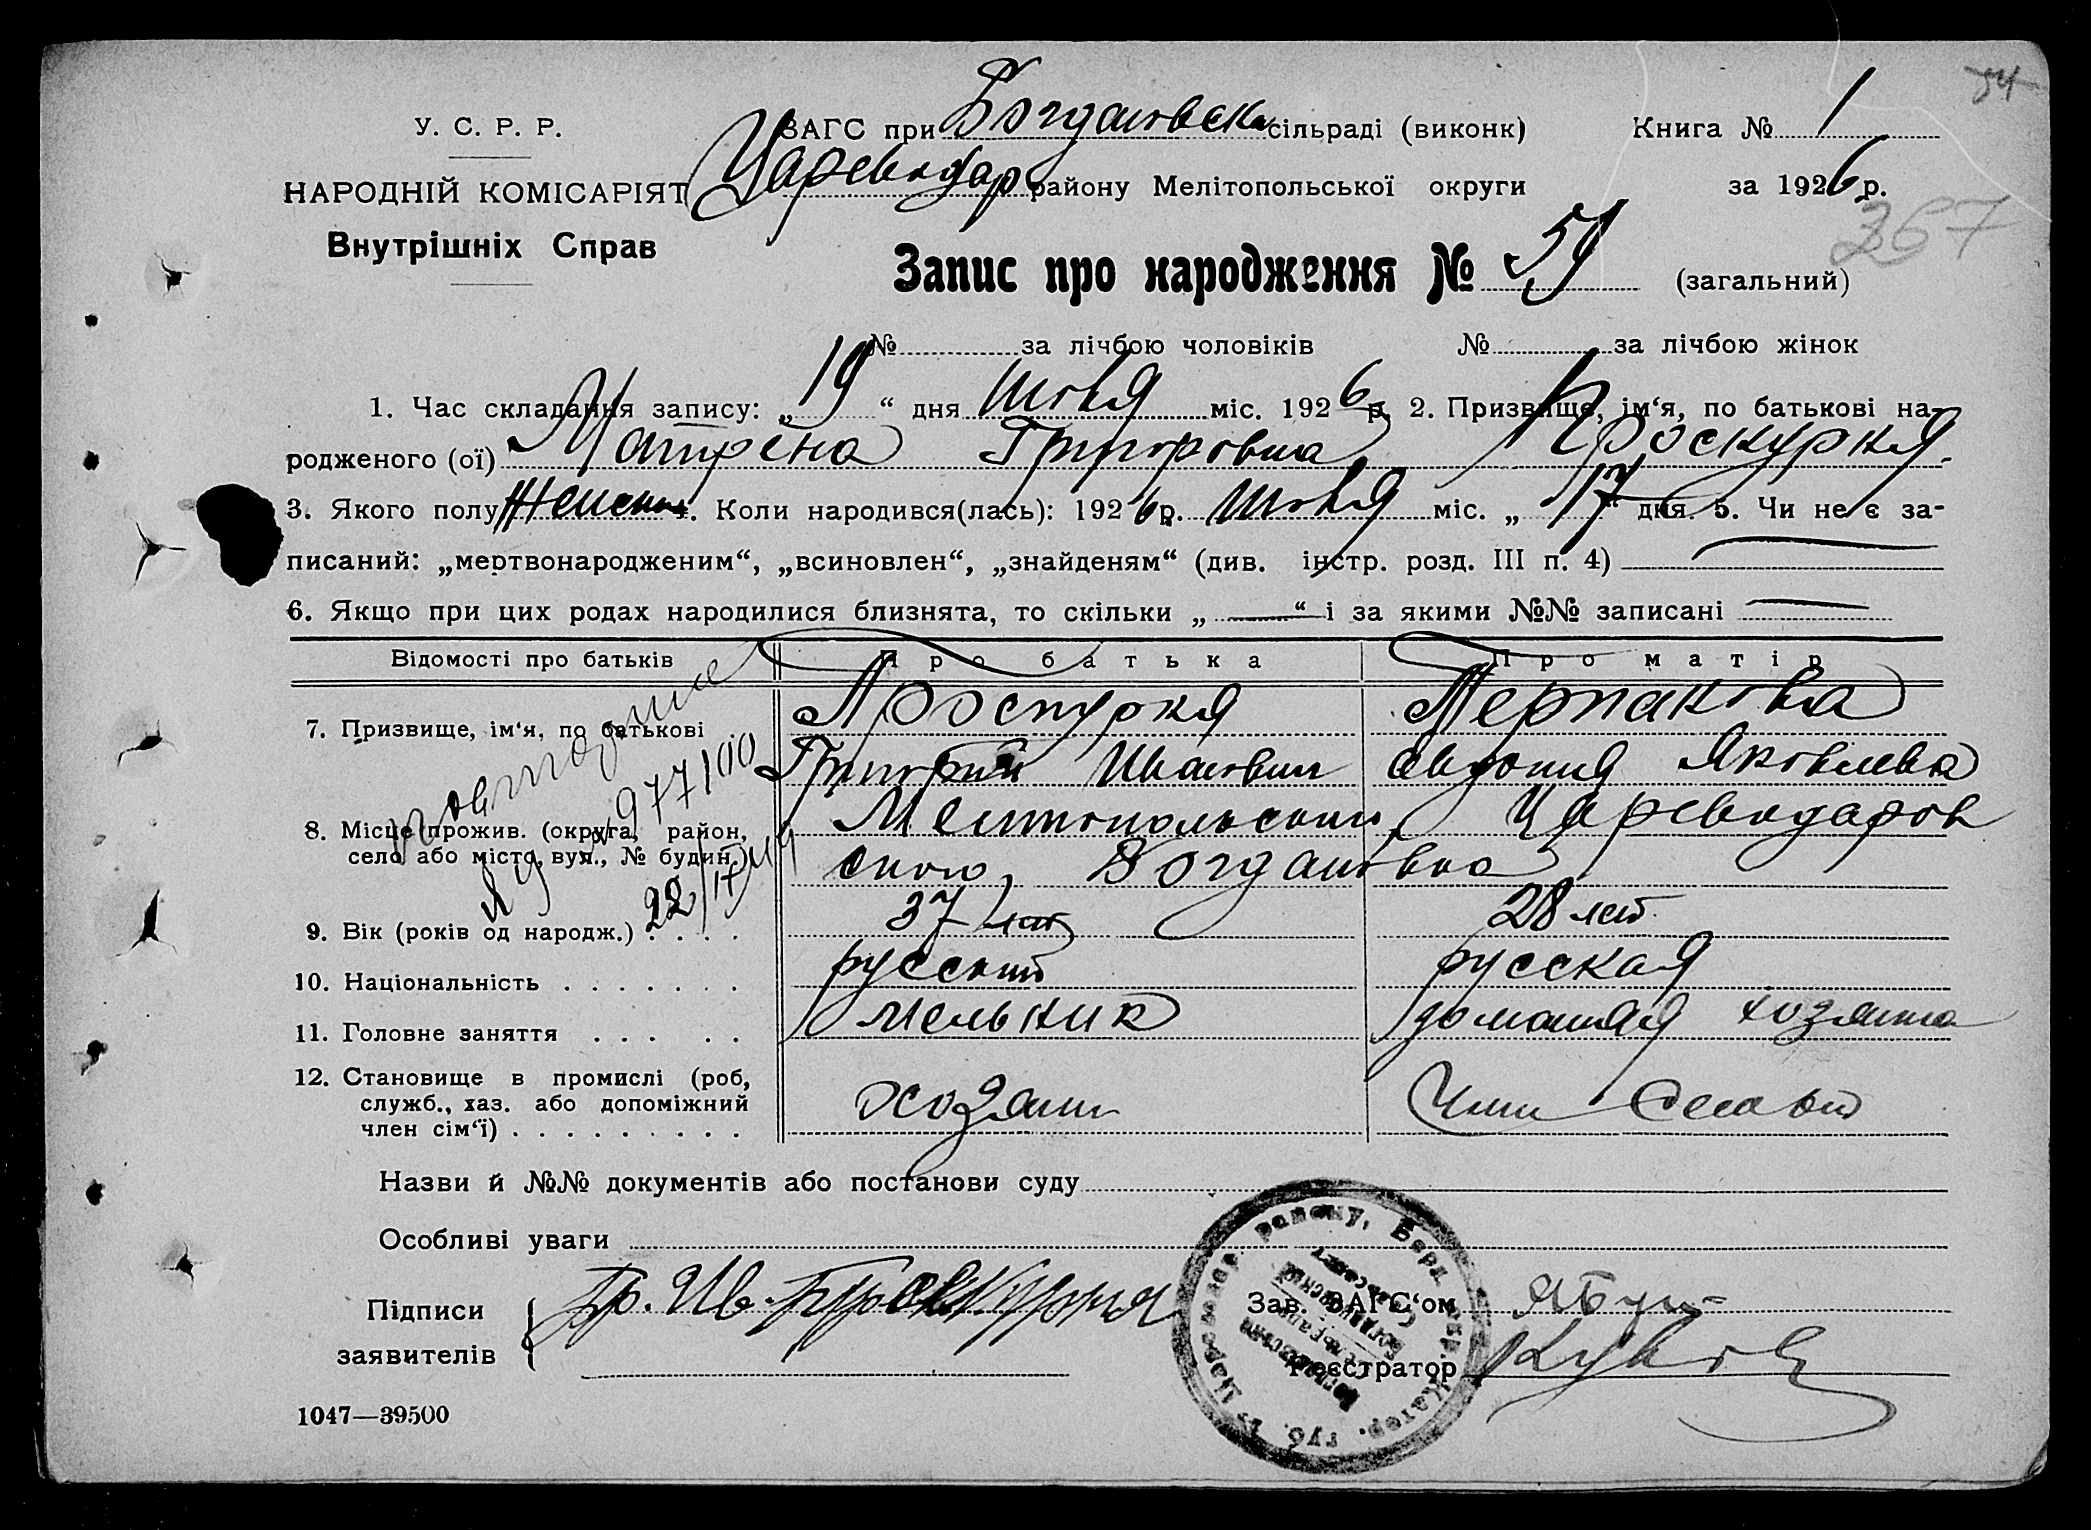 54
У. С. Р. Р.
ЗАГС при Богдановск сільраді (виконк) Книга № 1
НАРОДНІЙ КОМІСАРІЯТ Цареводар району Мелітопольської округи за 1926 р.
267
Внутрішніх Справ
Запис про народження № 59 (загальний)
№ за лічбою чоловіків № за лічбою жінок
1. Час складання запису: „19“ дня Июля міс. 1926 р. 2. Призвище, ім‘я, по батькові на-
родженого (ої) Матрена Григоровна Проскурня.
3. Якого полу Женск 4. Коли народився(лась): 1926 р. Июля міс. „17“ дня. 5. Чи не є за-
писаний: „мертвонародженим“, „всиновлен“, „знайденям“ (див. інстр. розд. III п. 4)
6. Якщо при цих родах народилися близнята, то скільки „ “ і за якими №№ записані
Відомості про батьків Про батька Про матір
7. Призвище, ім‘я, по батькові Проскурня
Григорий Иванович Евдокия Яковлевна
8. Місце прожив. (округа, район, село або місто, вул., № будин.) Мелитопольский, Цареводаров
ского, Богдановка
977100
22/
9. Вік (років од народж.) 37 лет 28 лет
10. Національність русский русская
11. Головне заняття мельник домашняя хозяйка
12. Становище в промислі (роб, служб., хаз. або допоміжний член сім‘ї) хозяин Член
Назви й №№ документів або постанови суду
Особливі уваги
Підписи заявителів Гр. Ив. Проскурня
Зав. ЗАГС‘ом
Реєстратор
1047—39500